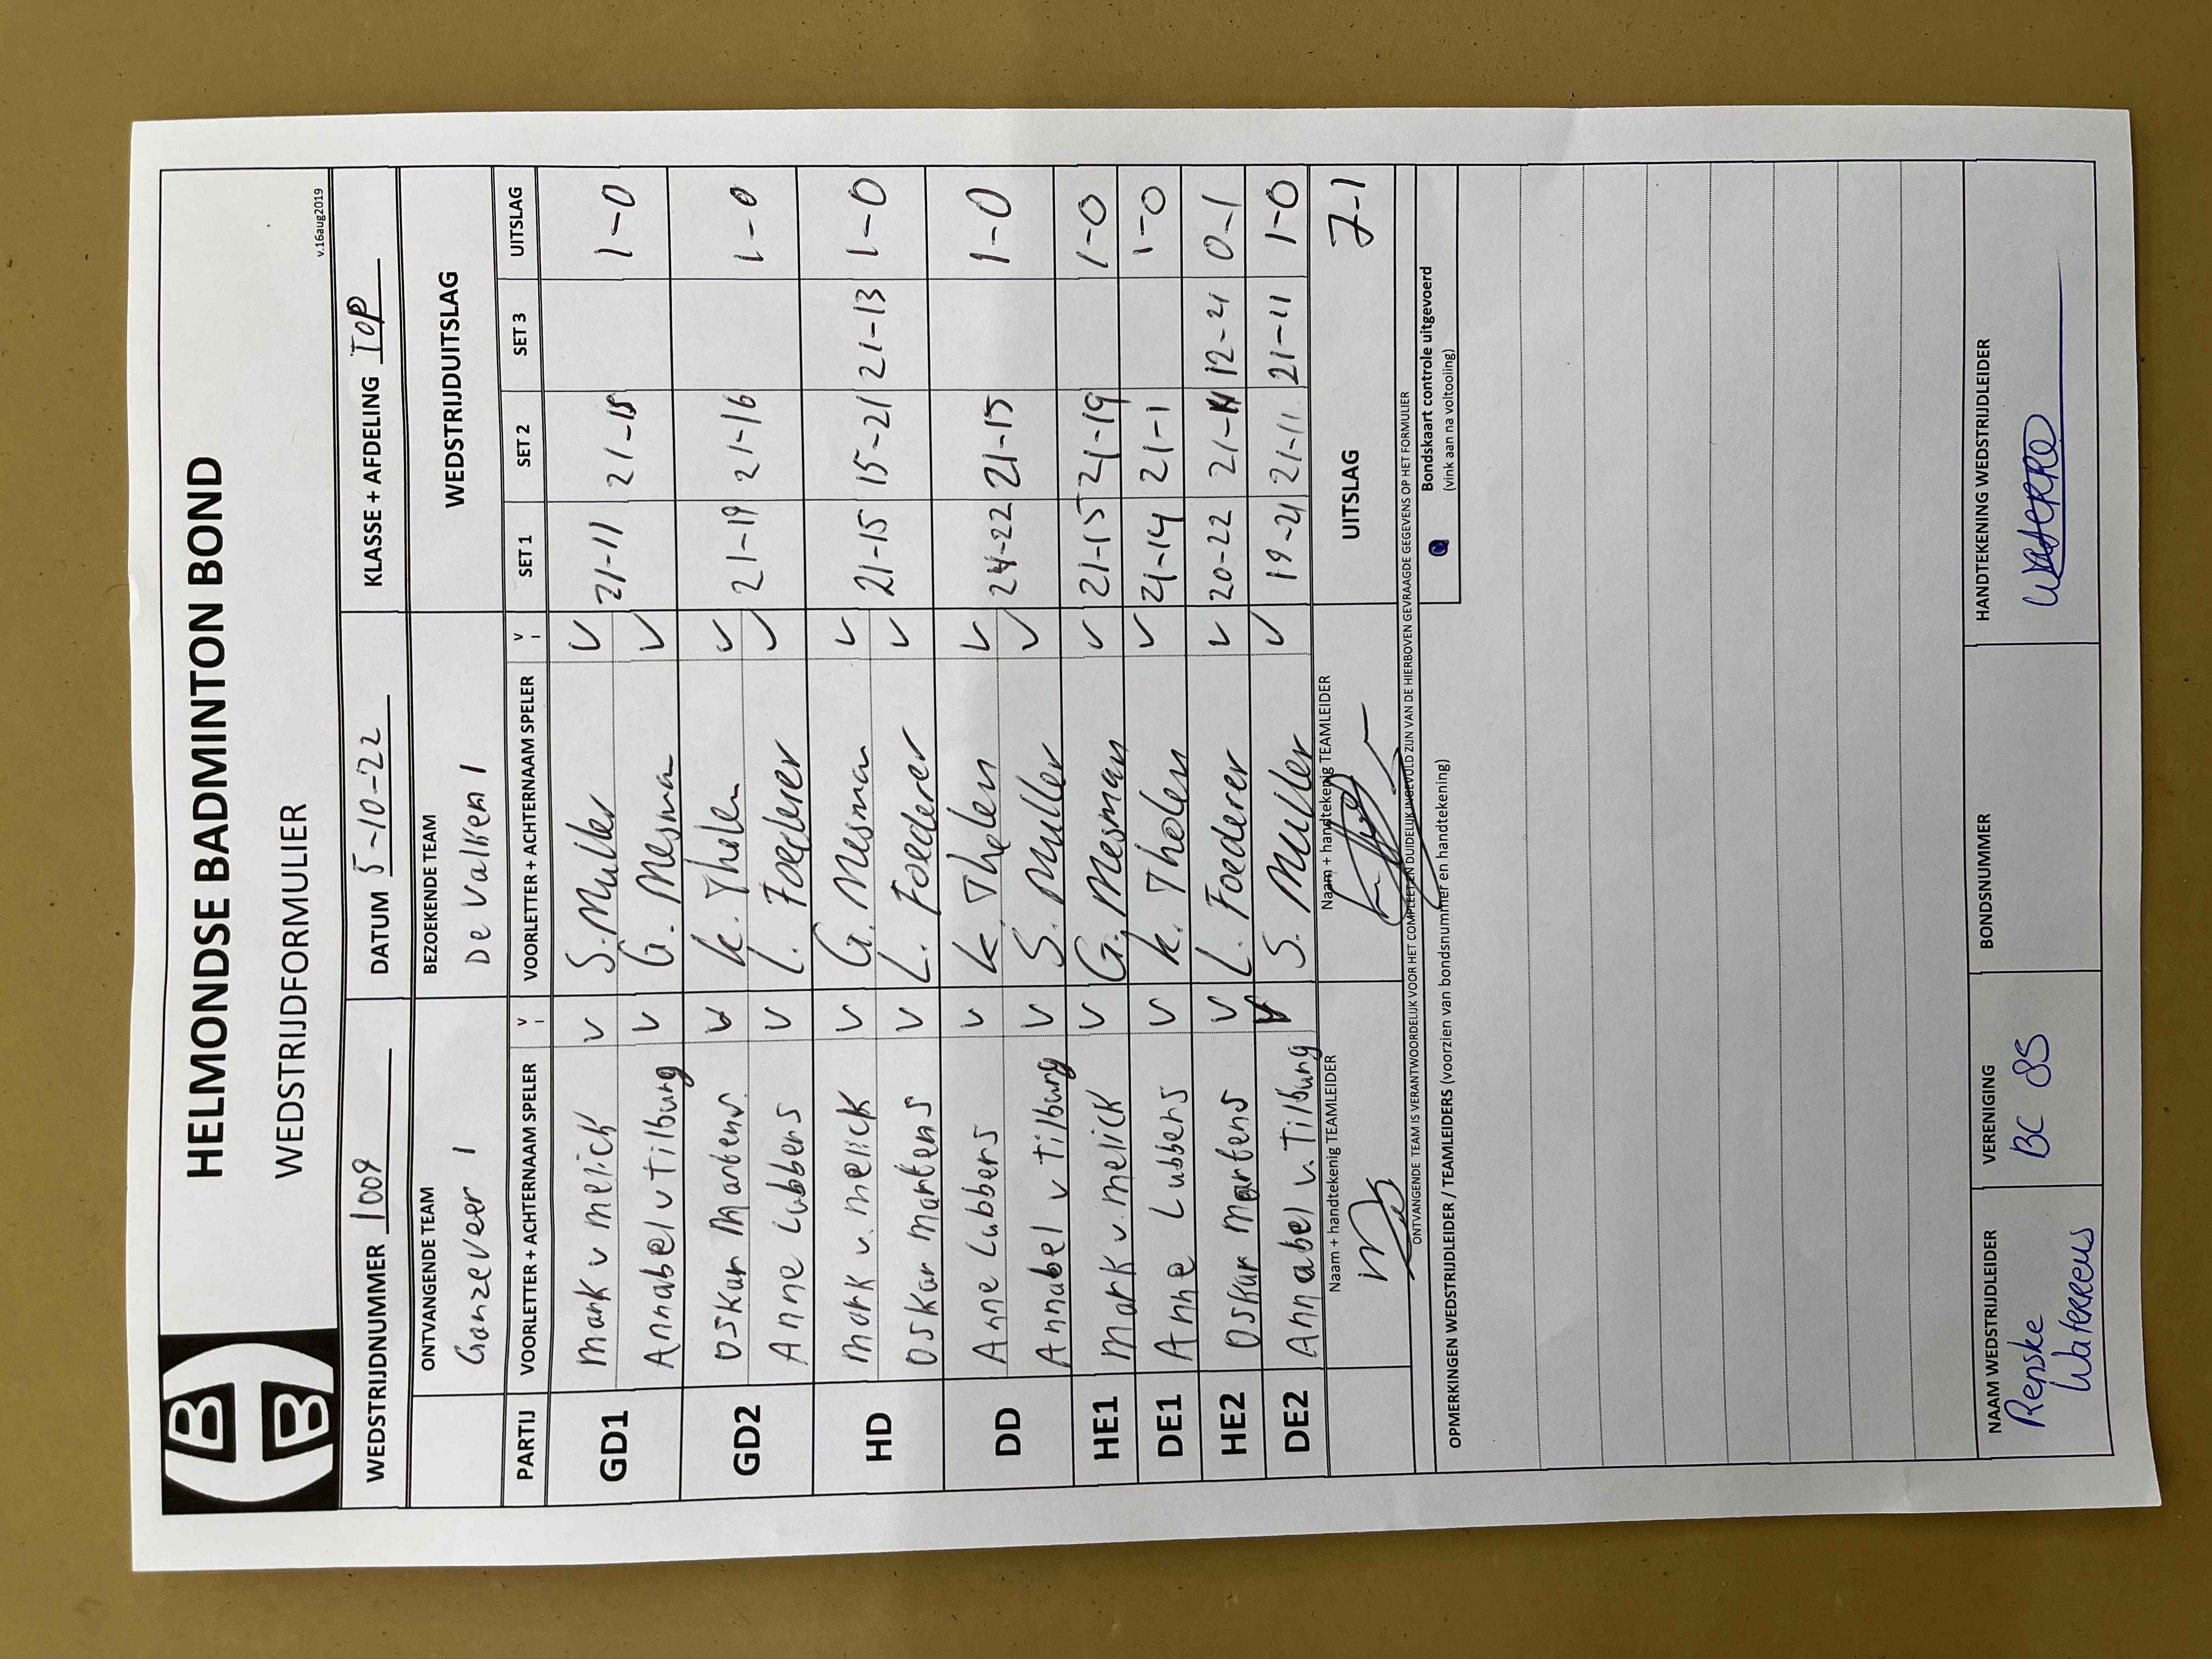 HELMONDSE BADMINTON BOND
WEDSTRIJDFORMULIER
v.16aug2019
WEDSTRIJDNUMMER 1009 DATUM 5-10-22 KLASSE + AFDELING TOP
ONTVANGENDE TEAM BEZOEKENDE TEAM WEDSTRIJDUITSLAG
Ganzeveer 1 De Valken 1
PARTIJ VOORLETTER + ACHTERNAAM SPELER V VOORLETTER + ACHTERNAAM SPELER V SET 1 SET 2 SET 3 UITSLAG
GD1 Mark v melick V S. Muller V 21-11 21-15 1-0
Annabel v Tilburg V G. Mesman V
GD2 Oskar Martens V K. Tholen V 21-19 21-16 1-0
Anne Lubbers V L. Foederer V
HD Mark v. melick V G. Mesman V 21-15 15-21 21-13 1-0
Oskar Martens V L. Foederer V
DD Anne Lubbers V K. Tholen V 24-22 21-15 1-0
Annabel v Tilburg V S. Muller V
HE1 Mark v. melick V G. Mesman V 21-15 21-19 1-0
DE1 Anne Lubbers V K. Tholen V 21-14 21-1 1-0
HE2 Oskar Martens V L. Foederer V 20-22 21-14 12-21 0-1
DE2 Annabel v. Tilburg V S. Muller V 19-21 21-11 21-11 1-0
Naam + handtekenig TEAMLEIDER Naam + handtekenig TEAMLEIDER UITSLAG 7-1
ONTVANGENDE TEAM IS VERANTWOORDELIJK VOOR HET COMPLEET EN DUIDELIJK INGEVULD ZIJN VAN DE HIERBOVEN GEVRAAGDE GEGEVENS OP HET FORMULIER
Bondskaart controle uitgevoerd
(vink aan na voltooiing)
OPMERKINGEN WEDSTRIJDLEIDER / TEAMLEIDERS (voorzien van bondsnummer en handtekening)
NAAM WEDSTRIJDLEIDER VERENIGING BONDSNUMMER HANDTEKENING WEDSTRIJDLEIDER
Renske BC 85
Waterreus